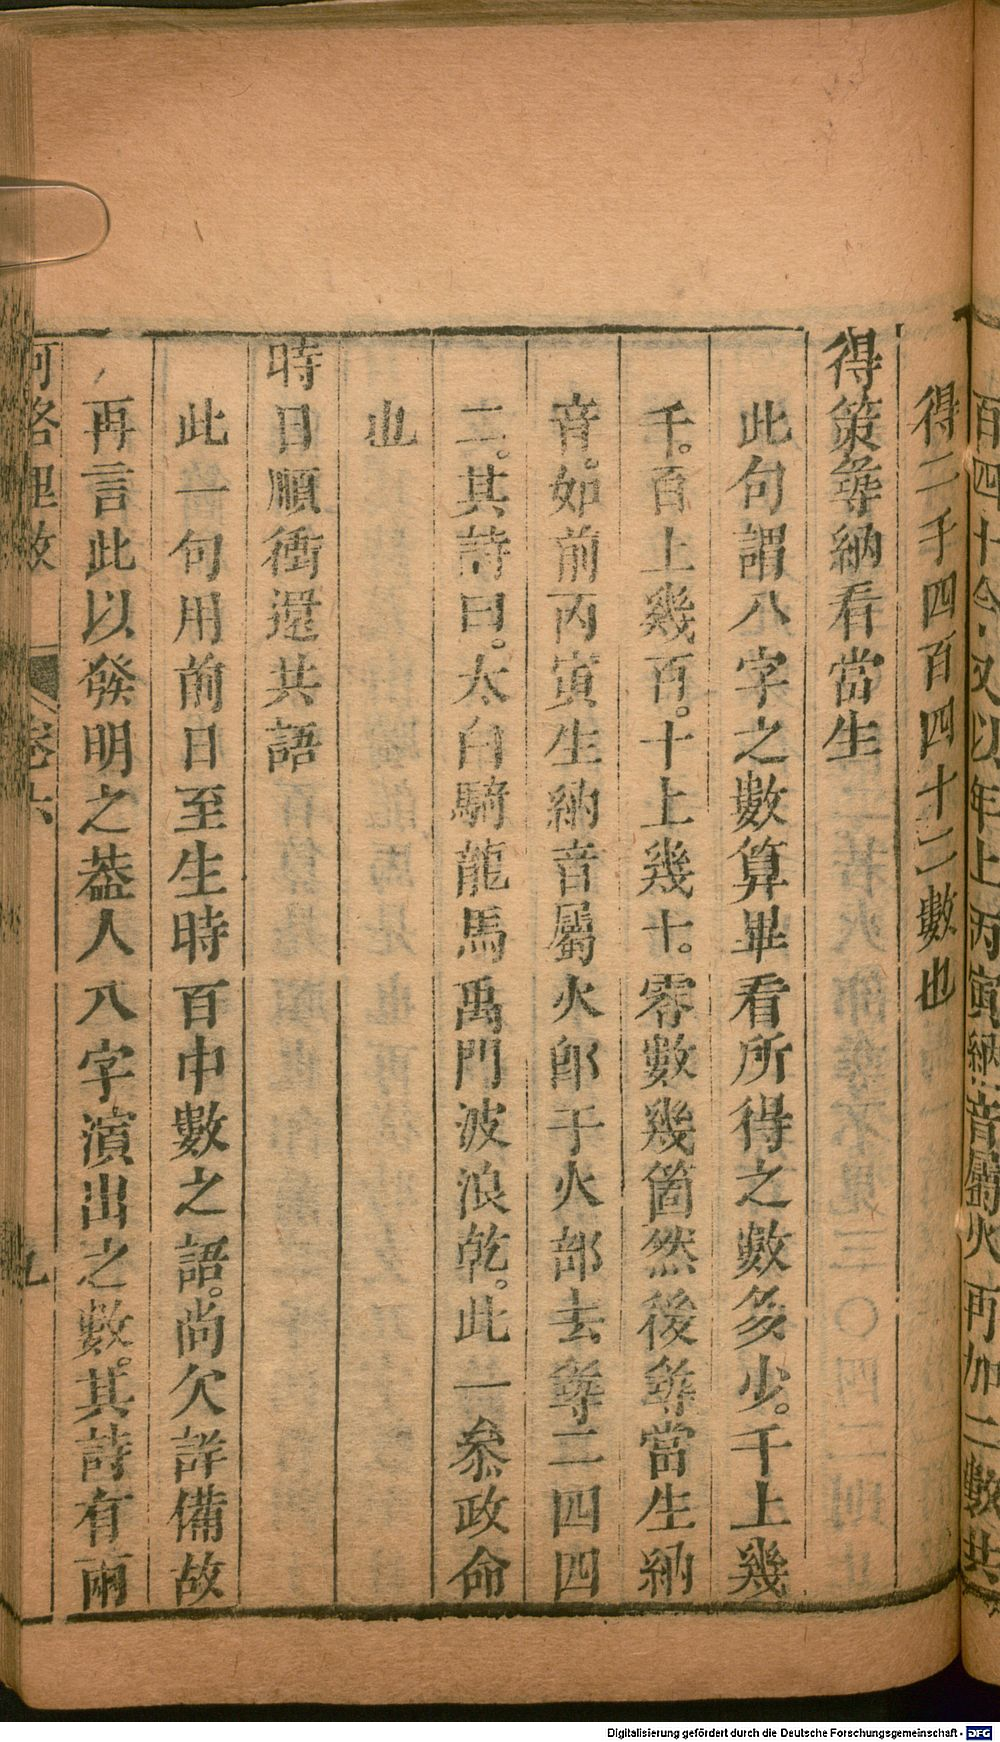 百四十今又以年上丙寅納音屬火再加二數共
得二千四百四十二數也
得策尋納看當生
此句謂八字之數算畢看所得之數多少。千上幾
千。百上幾百。十上幾十。零數幾箇然後尋當生納
音。如前丙寅生納音屬火郎于火部去尋二四四
二。其詩曰。太白騎龍馬禹門波浪乾。此一叅政命
也
時日順衝還共語
此一句用前日至生時百中數之語。尚欠詳備故
再言此以發明之葢人八字演出之數。其詩有兩
河洛理數 卷六 九
Digitalisierung gefördert durch die Deutsche Forschungsgemeinschaft - DFG